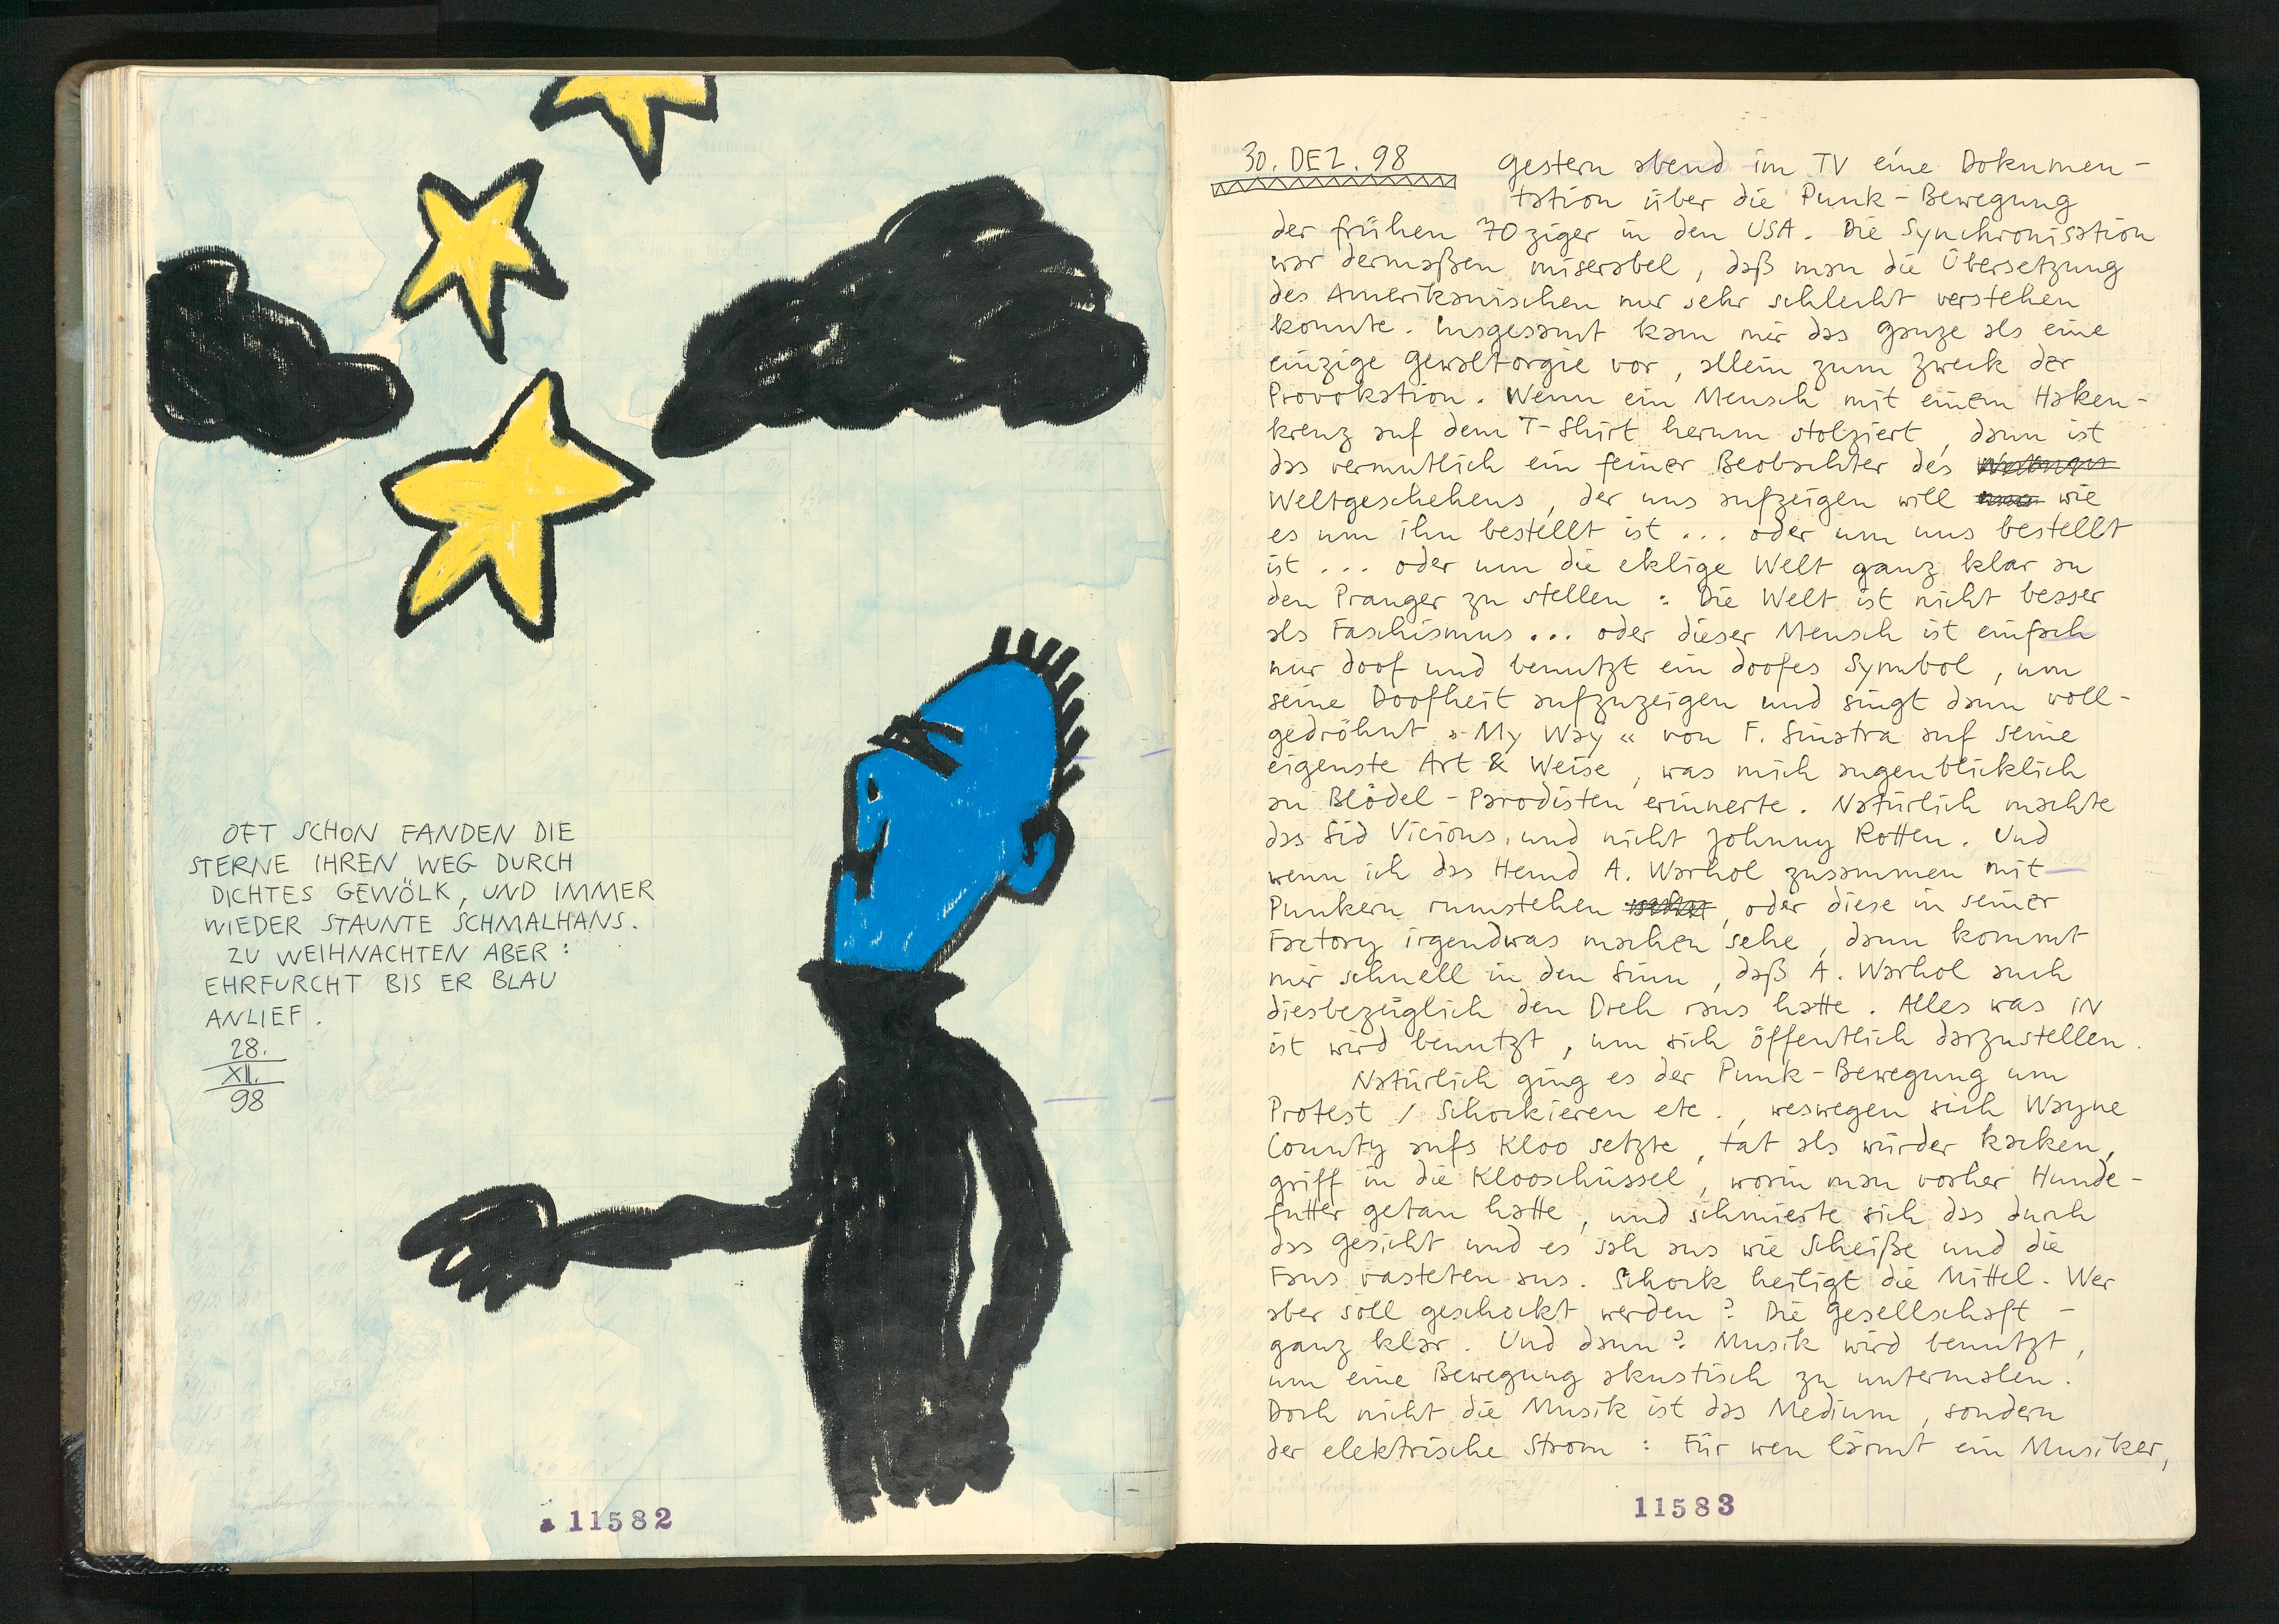 OFT SCHON FANDEN DIE
STERNE IHREN WEG DURCH
DICHTES GEWÖLK, UND IMMER
WIEDER STAUNTE SCHMALHANS.
ZU WEIHNACHTEN ABER:
EHRFURCHT BIS ER BLAU
ANLIEF.
28.
XII.
98
11582
30. DEZ. 98 Gestern abend im TV eine Dokumen-
tation über die Punk-Bewegung
der frühen 70ziger in den USA. Die Synchronisation
war dermaßen miserabel, daß man die Übersetzung
des Amerikanischen nur sehr schlecht verstehen
konnte. Insgesamt kam mir das Ganze als eine
einzige Gewaltorgie vor, allein zum Zweck der
Provokation. Wenn ein Mensch mit einem Haken-
kreuz auf dem T-Shirt herum stolziert, dann ist
das vermutlich ein feiner Beobachter des
Weltgeschehens, der uns aufzeigen will wie
es um ihn bestellt ist ... oder um uns bestellt
ist ... oder um die eklige Welt ganz klar an
den Pranger zu stellen: Die Welt ist nicht besser
als Faschismus ... oder dieser Mensch ist einfach
nur doof und benutzt ein doofes Symbol, um
seine Doofheit aufzuzeigen und singt dann voll-
gedröhnt »My Way« von F. Sinatra auf seine
eigenste Art & Weise, was mich augenblicklich
an Blödel-Parodisten erinnerte. Natürlich machte
das Sid Vicious, und nicht Johnny Rotten. Und
wenn ich das Hemd A. Warhol zusammen mit
Punkern rumstehen, oder diese in seiner
Factory irgendwas machen sehe, dann kommt
mir schnell in den Sinn, daß A. Warhol auch
diesbezüglich den Dreh raus hatte. Alles was IN
ist wird benutzt, um sich öffentlich darzustellen.
Natürlich ging es der Punk-Bewegung um
Protest / Schockieren etc., weswegen sich Wayne
County aufs Kloo setzte, tat als würder kacken,
griff in die Klooschüssel, worin man vorher Hunde-
futter getan hatte, und schmierte sich das durch
das Gesicht und es sah aus wie Scheiße und die
Fans rasteten aus. Schock heiligt die Mittel. Wer
aber soll geschockt werden? Die Gesellschaft -
ganz klar. Und dann? Musik wird benutzt,
um eine Bewegung akustisch zu untermalen.
Doch nicht die Musik ist das Medium, sondern
der elektrische Strom: Für wen lärmt ein Musiker,
11583